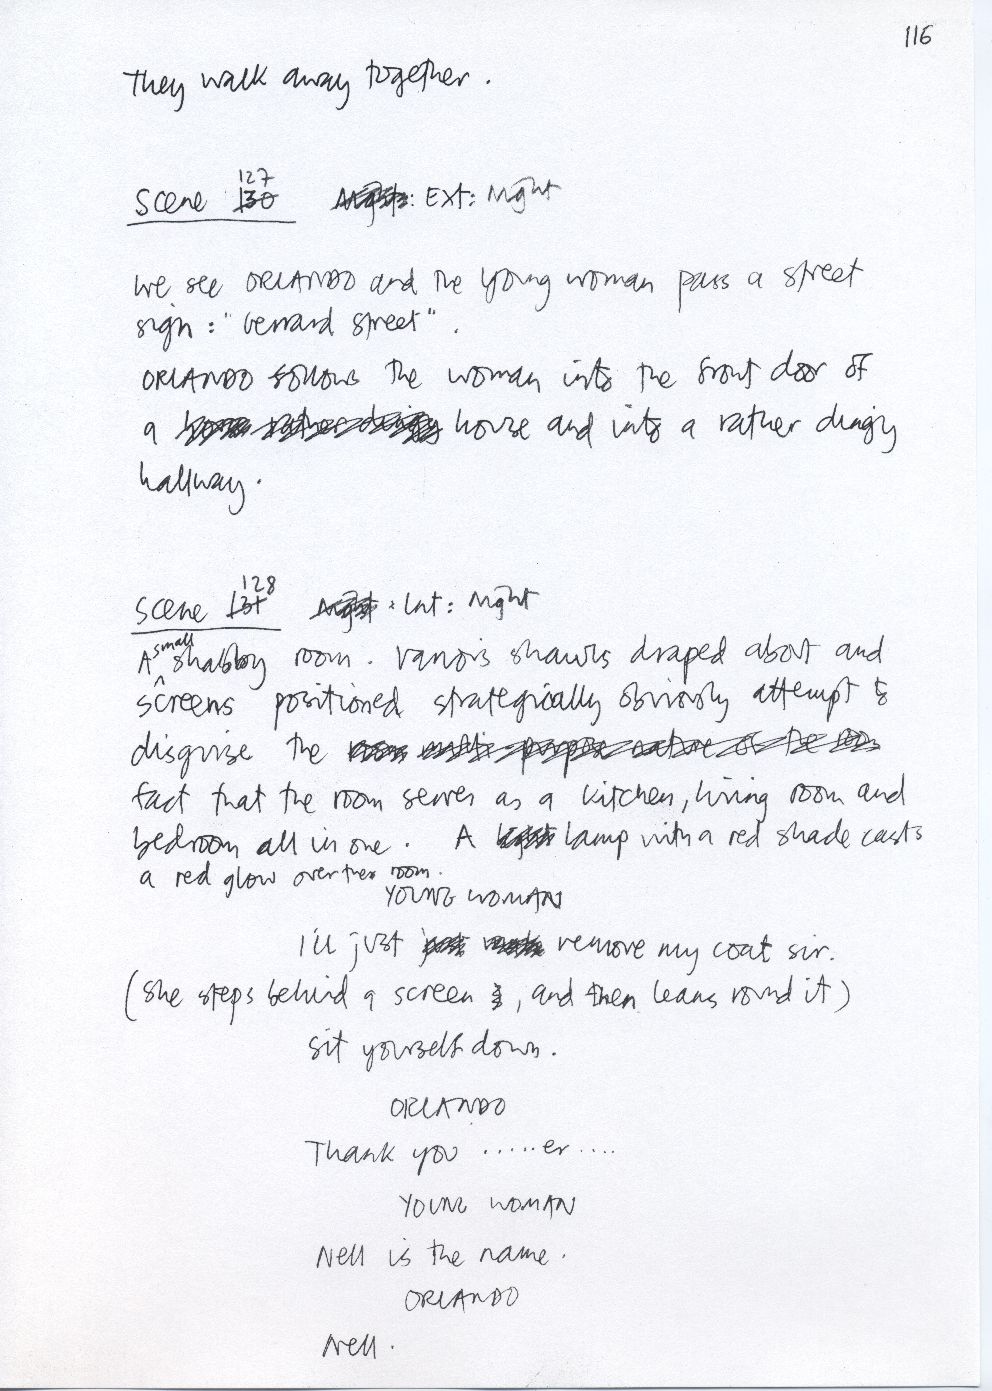 116
They walk away together.
Scene 130 127 : Ext: Night
We see ORLANDO and the young woman pass a street
sign: "Gerrard Street".
ORLANDO follows the woman into the front door of
a house and into a rather dingy
hallway.
Scene 131 128 : Int: Night
A small shabby room. Various shawls draped about and
screens positioned strategically obviously attempt to
disguise the
fact that the room serves as a kitchen, living room and
bedroom all in one. A lamp with a red shade casts
a red glow over the room.
YOUNG WOMAN
I'll just remove my coat sir.
(She steps behind a screen, and then leans round it)
Sit yourself down.
ORLANDO
Thank you .....er....
YOUNG WOMAN
Nell is the name.
ORLANDO
Nell.